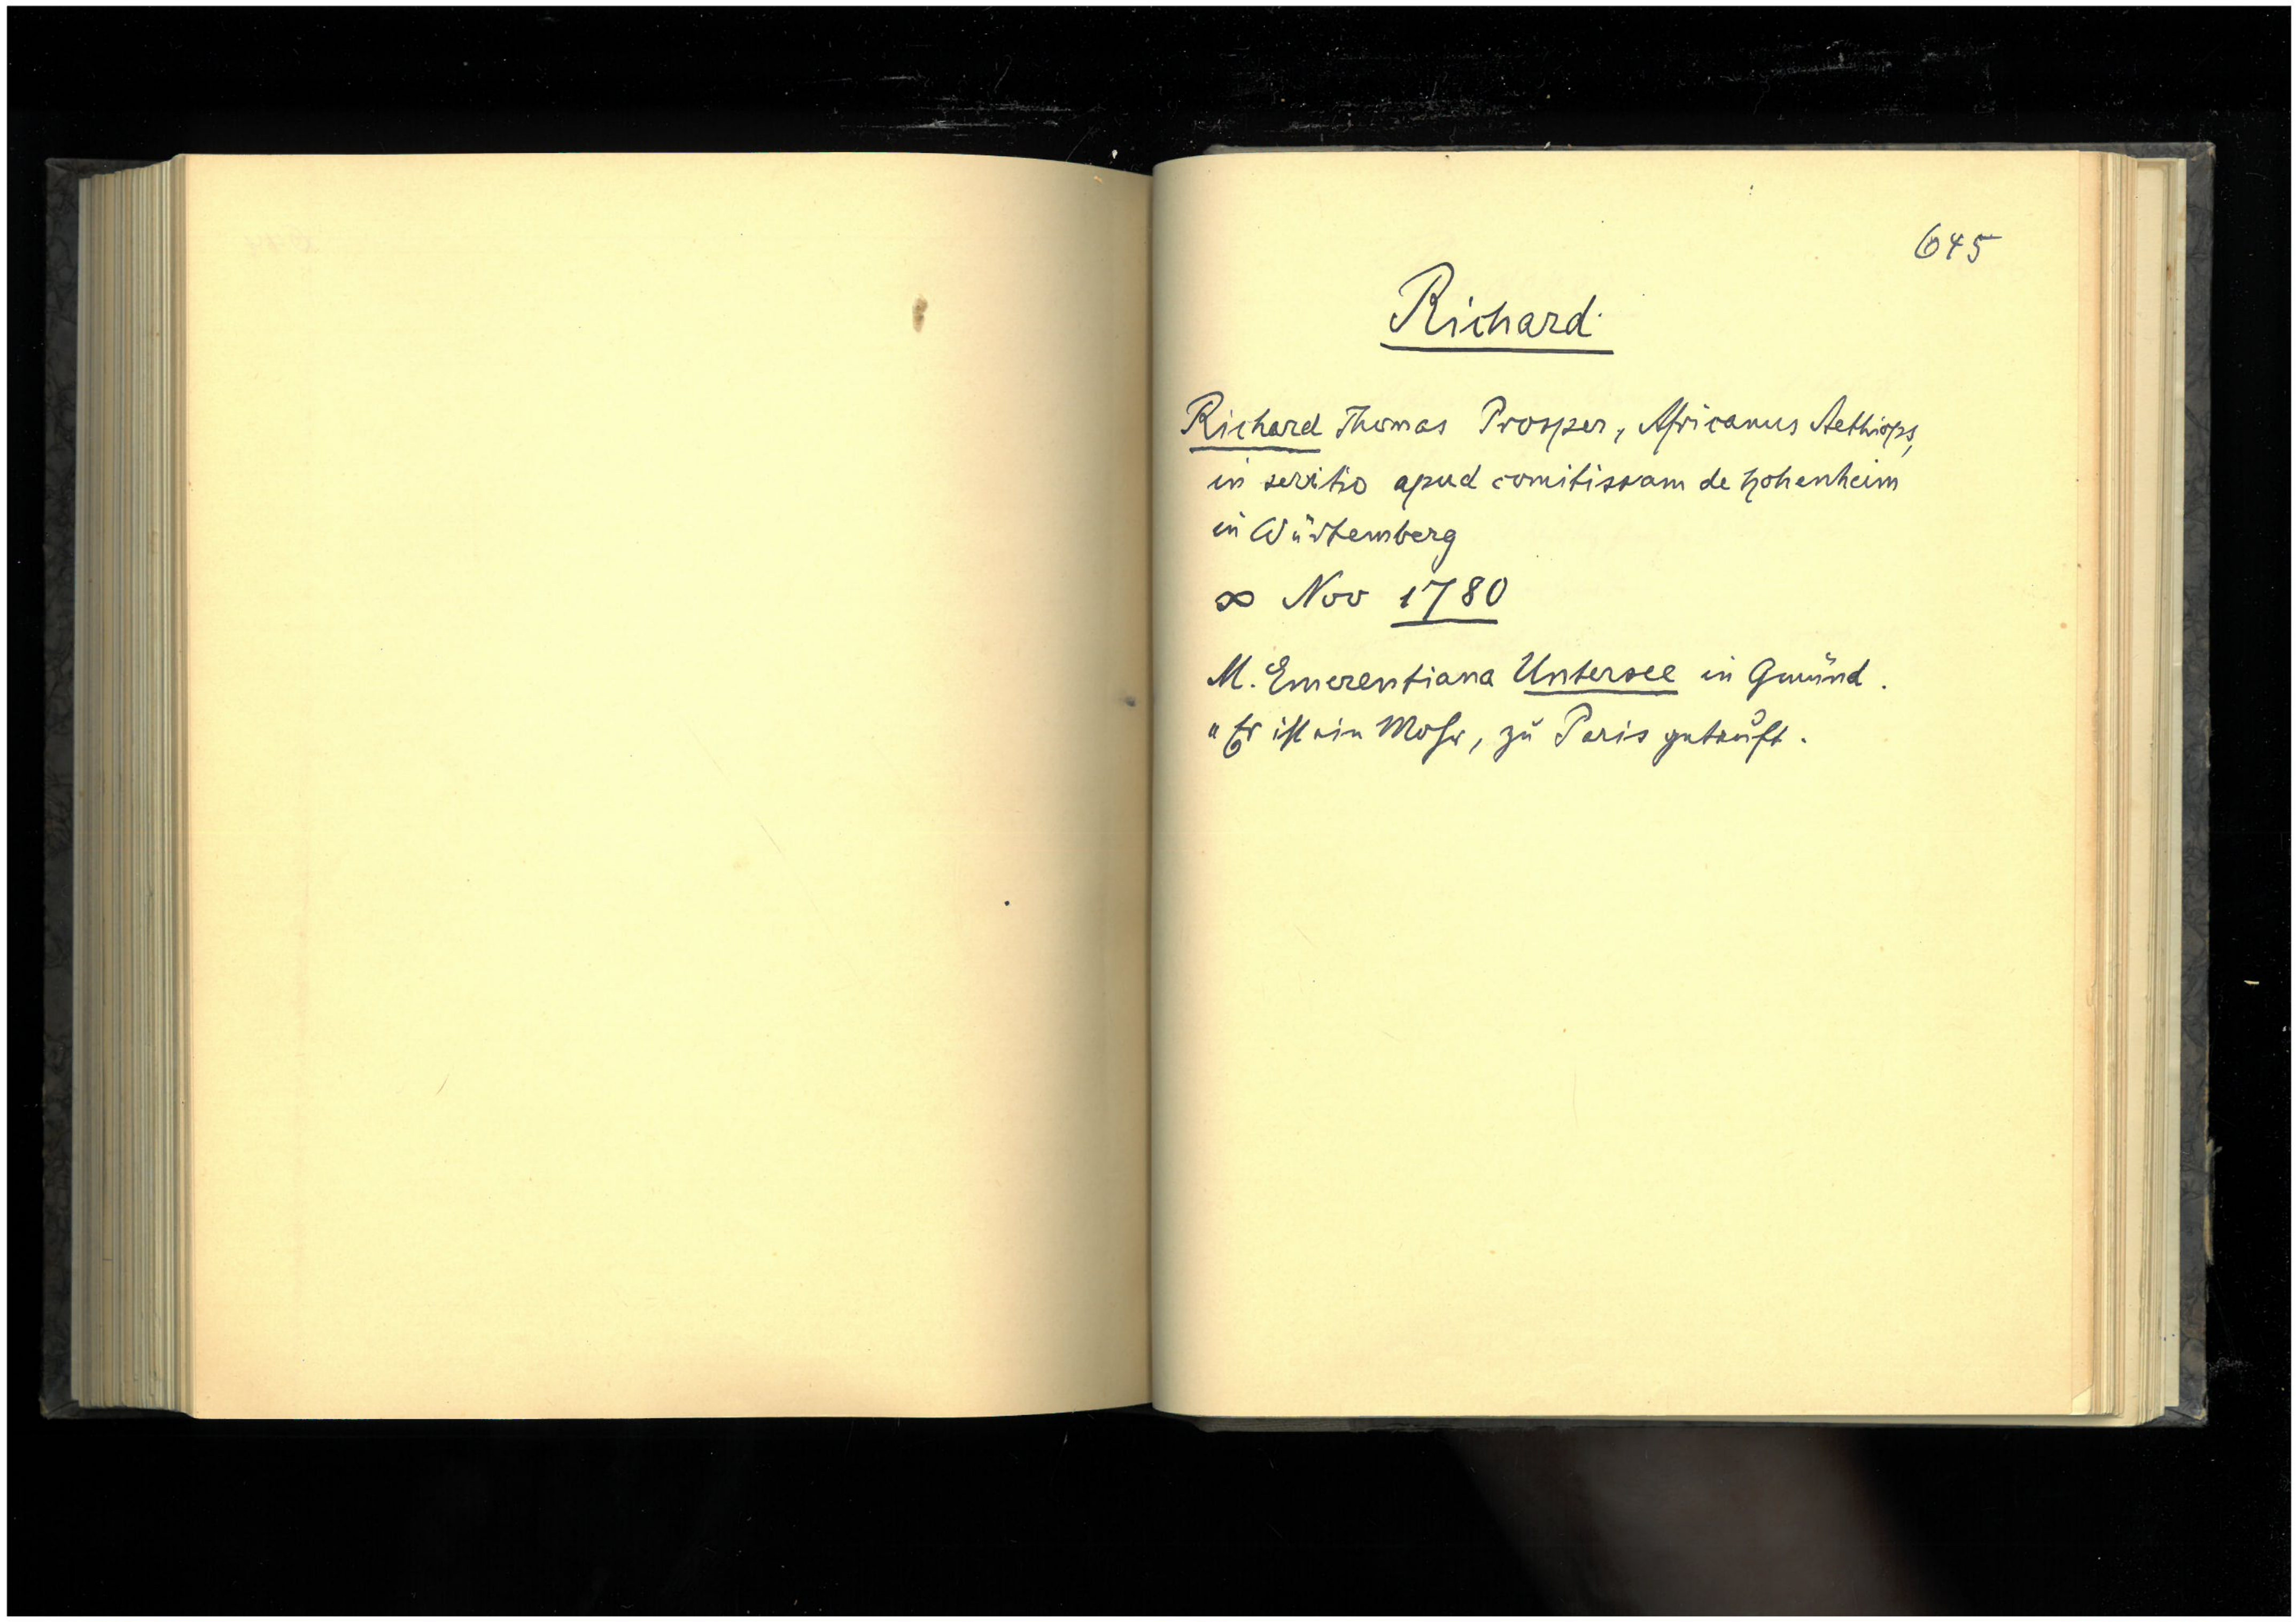 645
Richard
Richard Thomas Prosper, Africanus Aethiops,
in servitio apud comitissam de Hohenheim
in Würtemberg
∞ Nov 1780
M. Emerentiana Untersee in Gmünd.
"Er ist ein Mohr, zu Paris getauft.